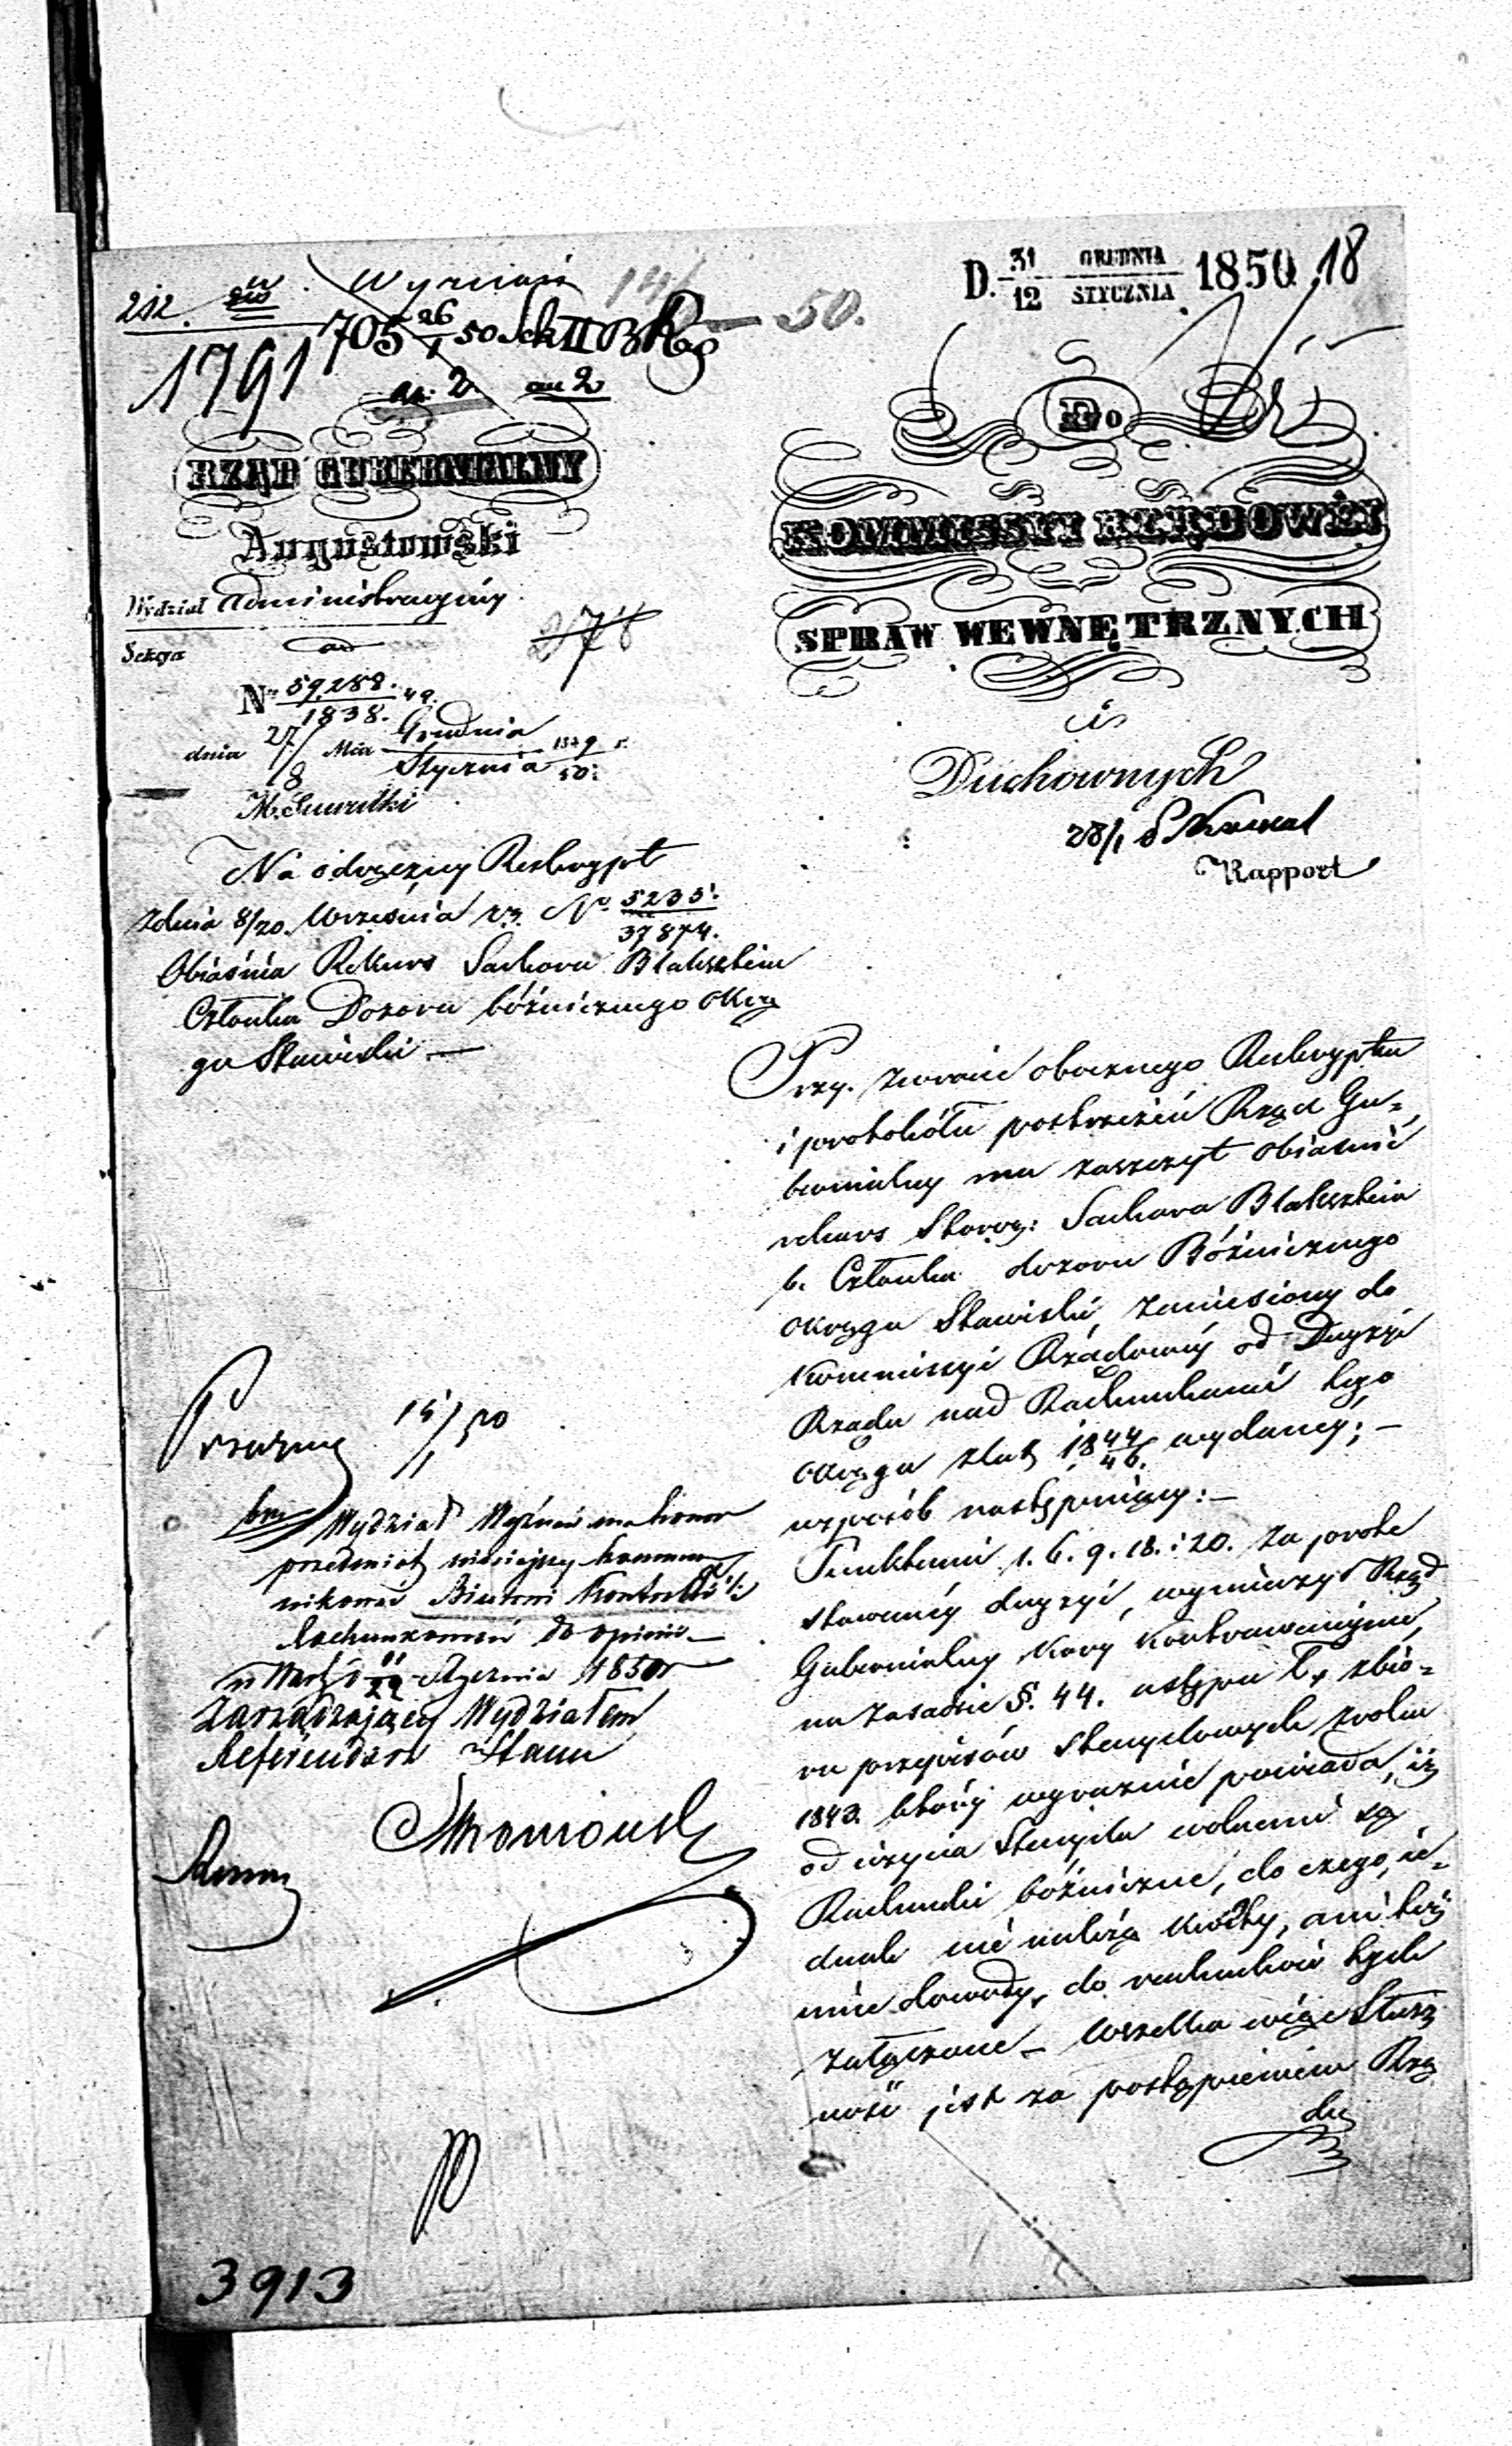 D. 31/12 GRUDNIA/STYCZNIA 1850 18
212.
1791
705 26/1 50 II
50.
RZĄD GUBERNIALNY
Augustowski
Wydział Administracyjny
Sekcya
N 59,288./1838. 49.
dnia 27/8 Mca Grudnia/Stycznia 1849/50 r.
M. Suwałki
Na odręczny Reskrypt
z dnia 8/20. Września r.z. No 5235./37874.
Obiaśnia Rekurs Sachora Blaksztein
Członka Dozoru bóżniczego Okrę
gu Stawiski —
Do
KOMMISSYI RZĄDOWÉJ
SPRAW WEWNĘTRZNYCH
i
Duchownych
28/1
Rapport
Przy zwrocie obocznego Reskryptu
i protokółu postrzeżeń Rząd Gu=
bernialny ma zaszczyt obiaśnić
rekurs Staroz: Sachora Blaksztein
b. Członka dozoru Bóżniczego
Okręgu Stawiski, zaniesiony do
Kommissyi Rządowéj od Decyzyi
Rządu nad Rachunkami tego
Okręgu z lat 1844/46. wydanéj; —
w sposób następujący: —
Punktami 1. 6. 9. 18. i 20. za proste
stowanéj decyzyi, wymierzył Rząd
Gubernialny Kary Kontrawencyjne,
na zasadzie §. 44. ustępu zbio=
ru przepisów Stemplowych z roku
1843. który wyraznie powiada, iż
od użycia Stempla wolnemi są
Rachunki bóżnicze, do czego, ie=
dnak nié należą Kwity, ani też
inne dowody, do rachunków tych
załączone — Wszelka więc Słusz
ność jest za postąpieniem Rzą
du
15/1 50
Wydział Wyznań ma honor
przedmiot niniejszy kommu
nikować Biuru Kontrolli i
Rachunkowości do opinii —
w Warsz. d. Stycznia 1850 r
Zarządzający Wydziałem
Referendarz Stanu
3913